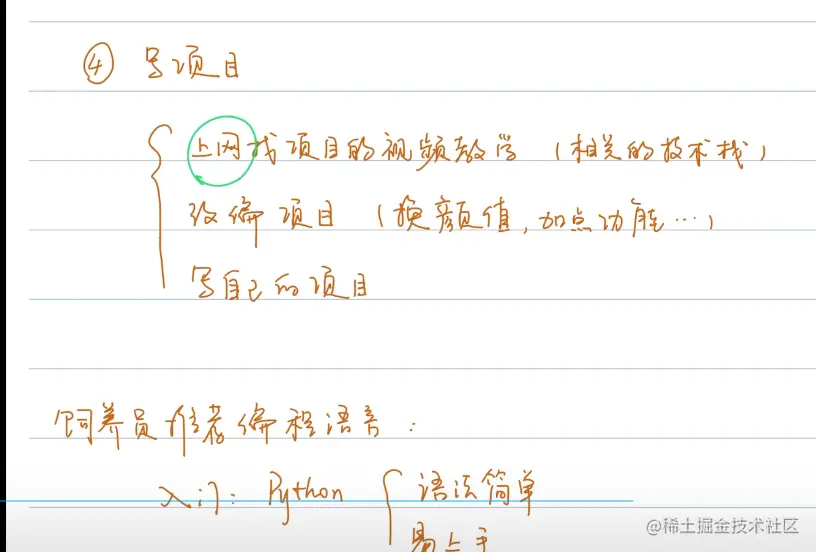 ④ 写项目
上网找项目的视频教学（相关的技术栈）
改编项目（换颜值，加点功能…）
写自己的项目
饲养员推荐编程语言：
入门：Python 语法简单
易上手
@稀土掘金技术社区